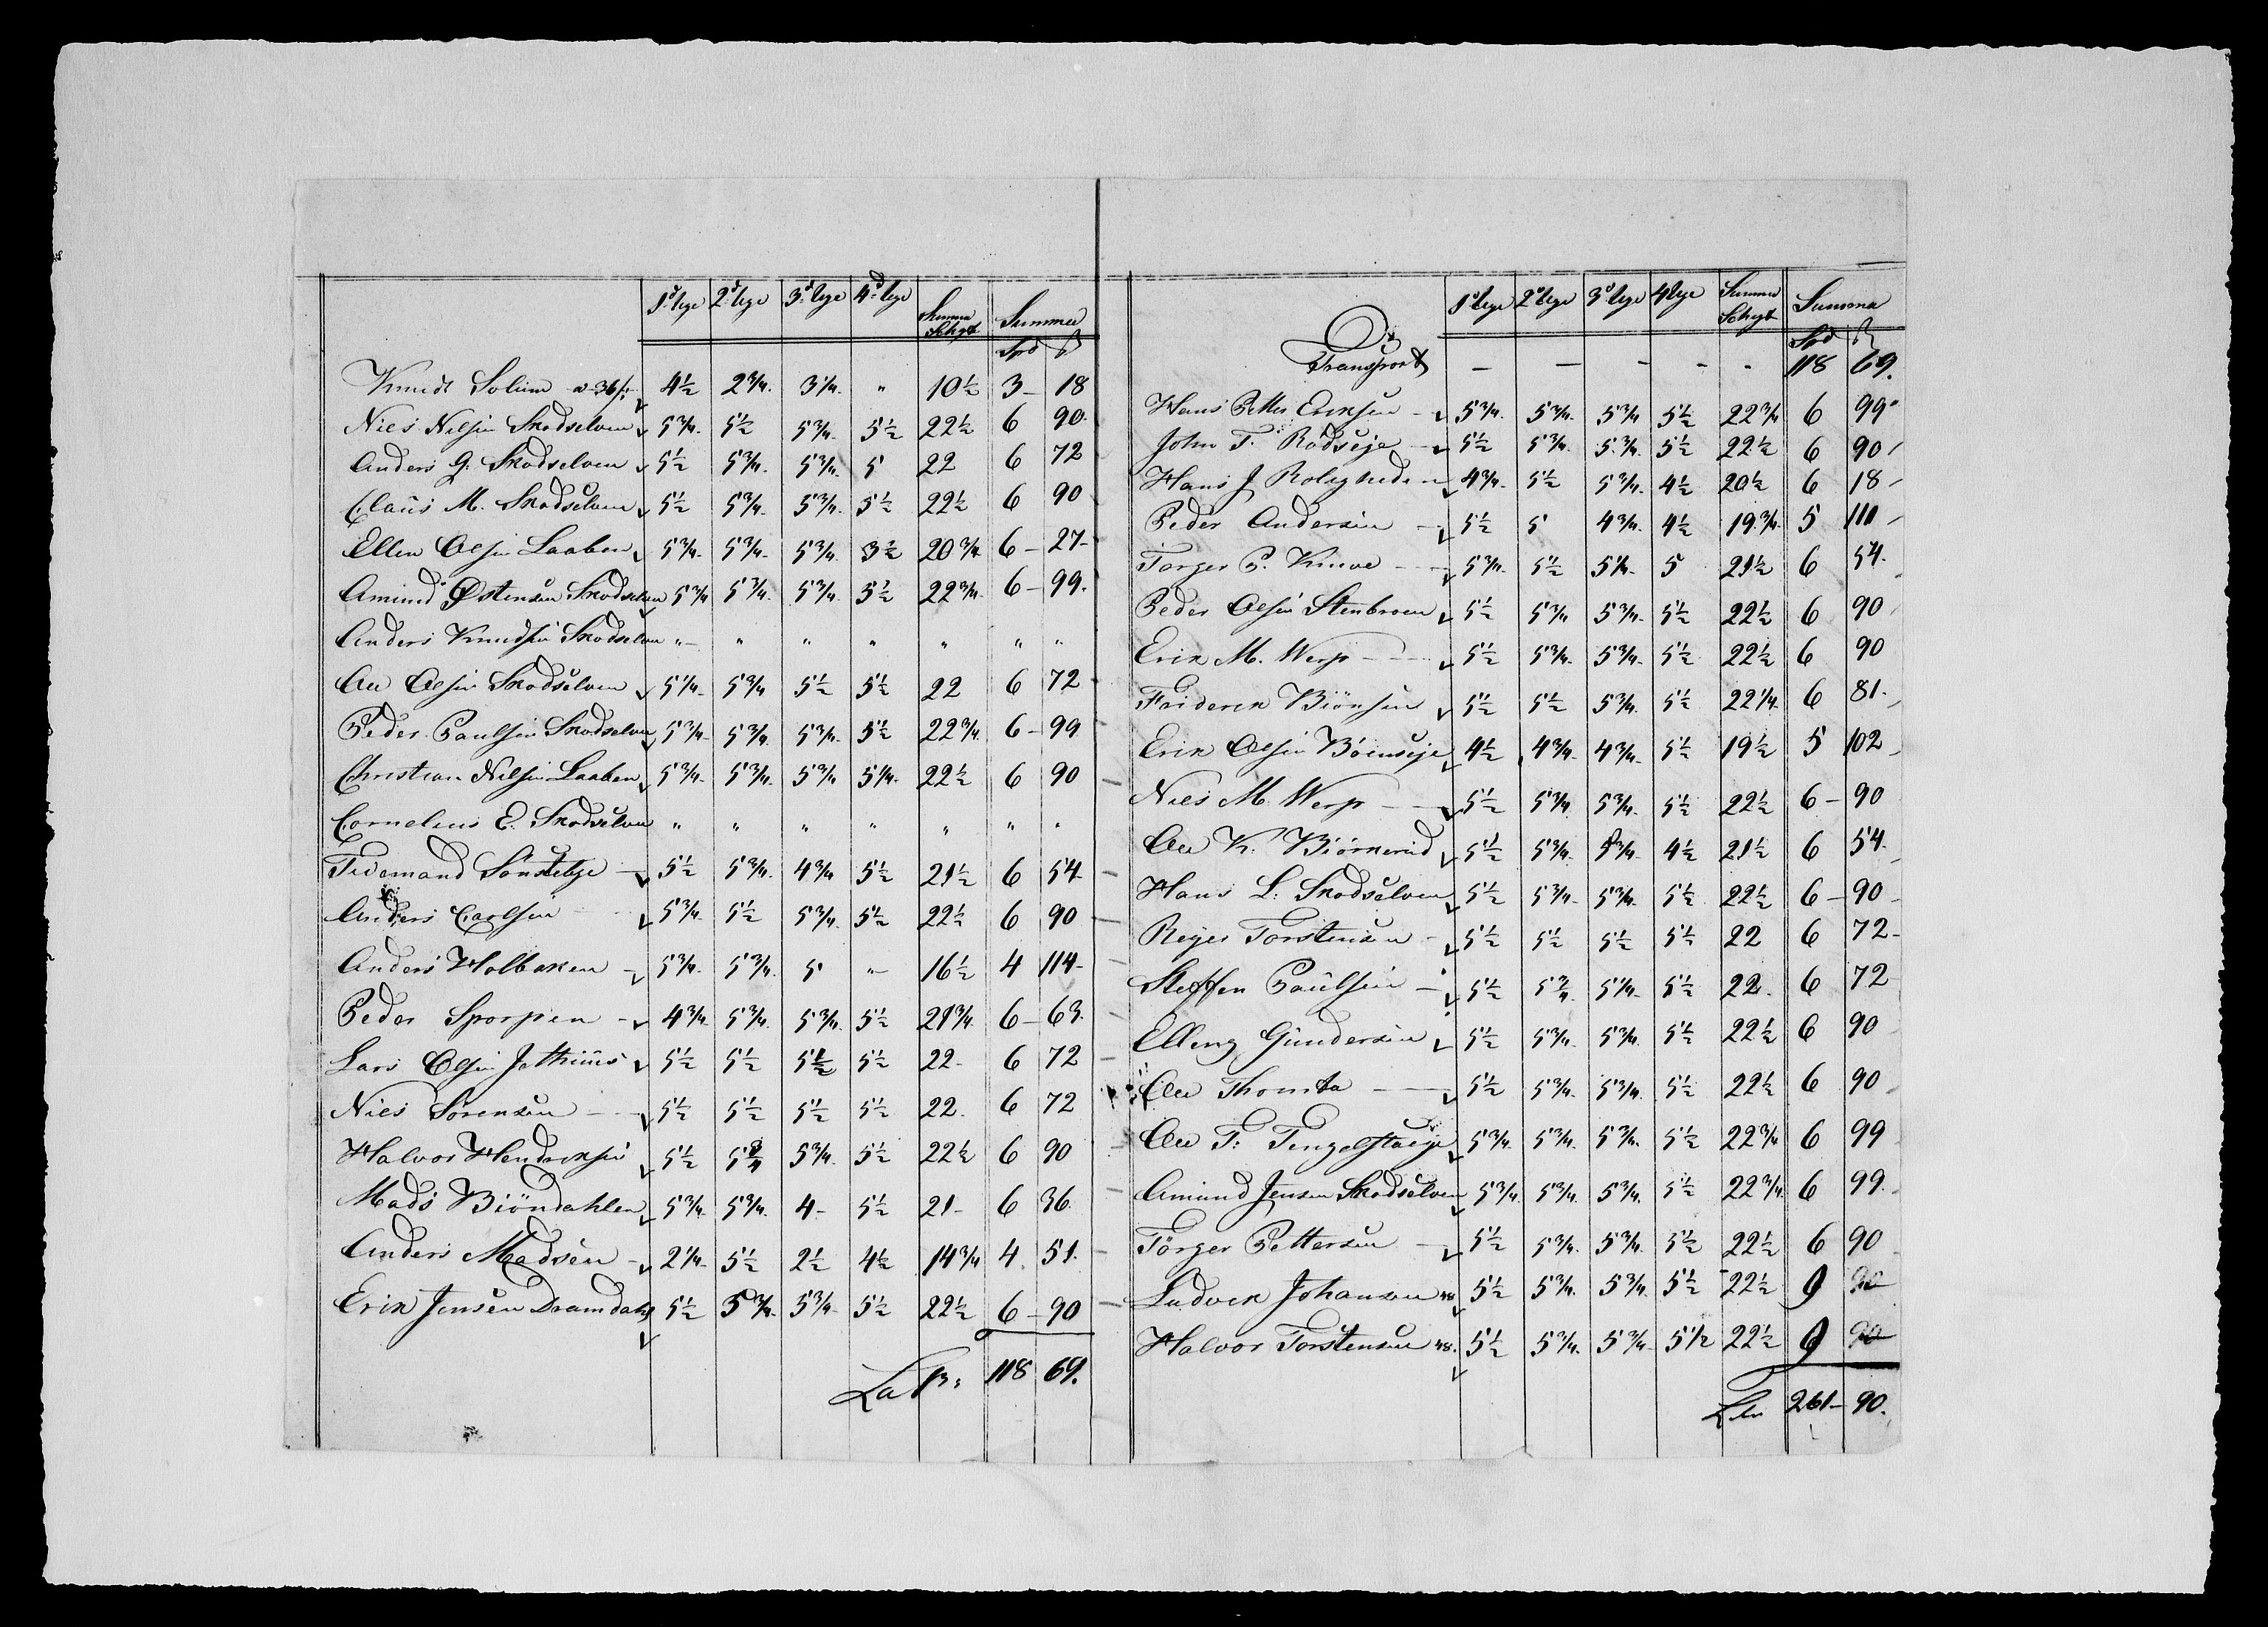 1d Uge 2d Uge 3d Uge 4d Uge Summa Schgt Summa
Spd ß
Knudt Solum a 36ß 4½ 2¾ 3¼ " 10½ 3 - 18
Niels Nilsen Skodselven 5¾ 5½ 5¾ 5½ 22½ 6 90
Anders G. Skodselven 5½ 5¾ 5¾ 5 22 6 72
Claus M. Skodselven 5½ 5¾ 5¾ 5½ 22½ 6 90
Ellen Olsen Laaben 5¾ 5¾ 5¾ 3½ 20¾ 6 - 27
Amund Østensen Skodselven 5¾ 5¾ 5¾ 5½ 22¾ 6 - 99.
Anders Knudsen Skodselven " " " " " " "
Ole Olsen Skodselven 5¼ 5¾ 5½ 5½ 22 6 72
Peder Paulsen Skodselven 5¾ 5¾ 5¾ 5½ 22¾ 6 - 99
Christian Nilsen Laaben 5¾ 5¾ 5¾ 5¼ 22½ 6 90
Cornelius E. Skodselven " " " " " " "
Tidemand Sønsteby 5½ 5¾ 4¾ 5½ 21½ 6 54
Anders Carlsen 5¾ 5½ 5¾ 5½ 22½ 6 90
Anders Holbaken 5¾ 5¾ 5 " 16½ 4 114
Peder Sporpen 4¾ 5¾ 5¾ 5½ 21¾ 6 - 63.
Lars Olsen 5½ 5½ 5½ 5½ 22 6 72
Niels Sørensen 5½ 5½ 5½ 5½ 22. 6 72
Halvor Hendreksen 5½ 5¾ 5¾ 5½ 22½ 6 90
Mads Biöndahlen 5¾ 5¾ 4 - 5½ 21 - 6 36
Anders Madsen 2¼ 5½ 2½ 4½ 14¾ 4. 51.
Erik Jensen Dramdahl 5½ 5¾ 5¾ 5½ 22½ 6 - 90
Latr: 118 69.
1d Uge 2d Uge 3d Uge 4 Uge Summa Schgt Summa
Spd ß
Transport - - - - - 118 69.
Hans Petter Eriksen 5¾ 5¾ 5¾ 5½ 22¾ 6 99
John T. Rødseje 5½ 5¾ 5¾ 5½ 22½ 6 90
Hans J Rolighede 4¾ 5½ 5¾ 4½ 20½ 6 18
Peder Andersen 5½ 5 4¾ 4½ 19¾ 5 111
Torger P. Knive 5¾ 5½ 5¼ 5 21½ 6 54.
Peder Olsen Stenbroen 5½ 5¾ 5¾ 5½ 22½ 6 90
Erik M. Werp 5½ 5¾ 5¾ 5½ 22½ 6 90
Friderek Biönsen 5½ 5½ 5¾ 5½ 22¼ 6 81.
Erik Olsen Böenseje 4½ 4¾ 4¾ 5½ 19½ 5 102
Niels M. Werp 5½ 5¾ 5¾ 5½ 22½ 6 - 90
Ole K. Biørnerud 5½ 5¾ 5¾ 4½ 21½ 6 54.
Hans L. Skodselven 5½ 5¾ 5¾ 5½ 22½ 6 - 90
Reyer Torstensen 5½ 5½ 5½ 5½ 22 6 72
Steffen Paulsen 5½ 5¾ 5¼ 5½ 22. 6 72
Elling Gundersen 5½ 5¾ 5¾ 5½ 22½ 6 90
Ole Thomta 5½ 5¾ 5¾ 5½ 22½ 6 90
Ole T: Tingelstaeje 5¾ 5¾ 5¾ 5½ 22¾ 6 99
Amund Jensen Skodselven 5¾ 5¾ 5¾ 5½ 22¾ 6 99.
Törger Pettersen 5½ 5¾ 5¾ 5½ 22½ 6 90
Ludvek Johansen 48 5½ 5¾ 5¾ 5½ 22½ 9 90
Halvor Torstensen 48. 5½ 5¾ 5¾ 5½ 22½ 9 90
Ltr 261 - 90.